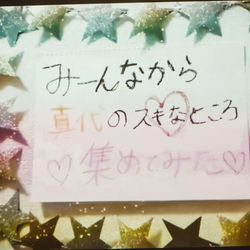 みーんなから
真代のスキなところ
♡集めてみた♡